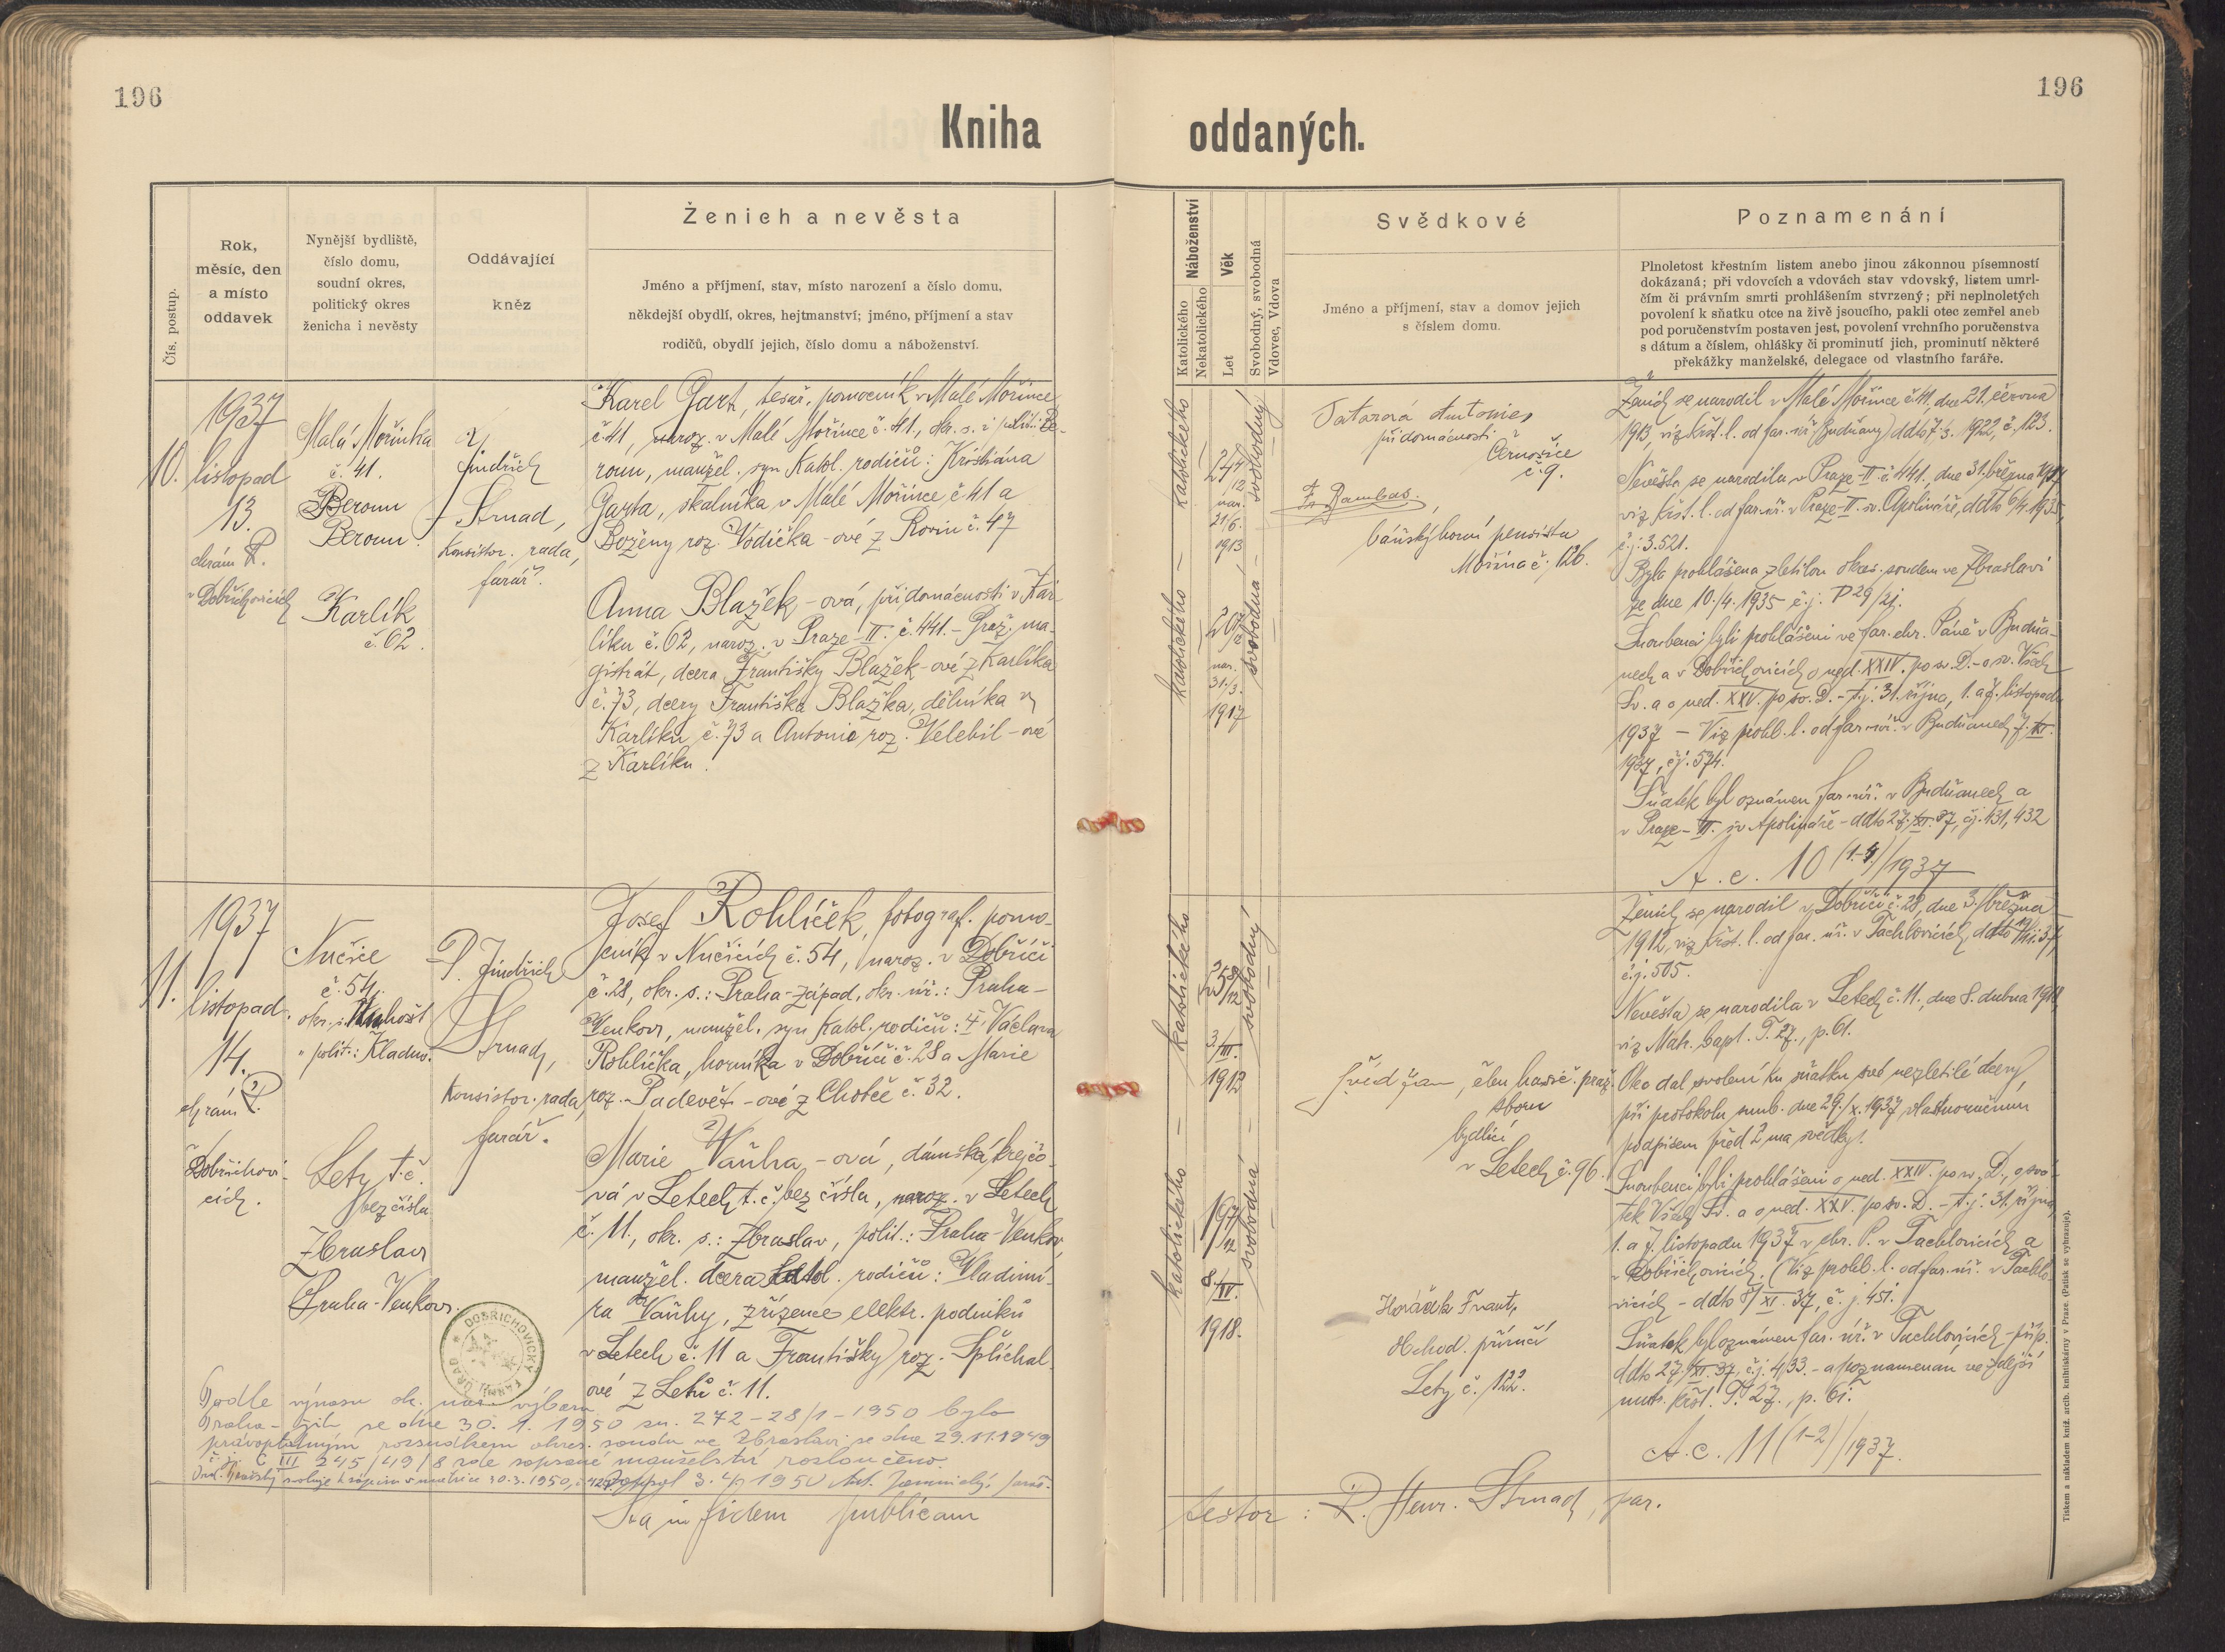 196
196
Kniha oddaných.
Čís. postup.
Rok,
měsíc, den
a místo
oddavek
Nynější bydliště,
číslo domu,
soudní okres,
politický okres
ženicha i nevěsty
Oddávající
kněz
Ženich a nevěsta
Jméno a příjmení, stav, místo narození a číslo domu,
někdejší obydlí, okres, hejtmanství; jméno, příjmení a stav
rodičů, obydlí jejich, číslo domu a náboženství.
Náboženství
Katolického
Nekatolického
Věk
Let
Svobodný, svobodná
Vdovec, Vdova
Svědkové
Jméno a příjmení, stav a domov jejich
s číslem domu.
Poznamenání
Plnoletost křestním listem anebo jinou zákonnou písemností
dokázaná; při vdovcích a vdovách stav vdovský, listem umrl-
čím či právním smrti prohlášením stvrzený; při neplnoletých
povolení k sňatku otce na živě jsoucího, pakli otec zemřel aneb
pod poručenstvím postaven jest, povolení vrchního poručenstva
s dátum a číslem, ohlášky či prominutí jich, prominutí některé
překážky manželské, delegace od vlastního faráře.
10.
1937
listopad
13.
chrám P.
v Dobřichovicích
Malá Mořinka
č. 41.
Beroun
Beroun.
Karlík
č. 62.
Jindřich
Strnad,
Konsistor. rada,
farář.
Karel Gart, tesař. pomocník v Malé Mořince
č. 41, naroz. v Malé Mořince č. 41, okr. s. i polit.: Be-
roun, manžel. syn katol. rodičů: Kristiána
Garta, skalníka v Malé Mořince č. 41 a
Boženy roz. Vodička-ové z Rovin č. 47
Anna Blažek-ová, při domácnosti v Kar-
líku č. 62, naroz. v Praze-II. č. 441.-Praž. ma-
gistrát, dcera Františky Blažek-ové z Karlíka
č. 73, dcery Františka Blažka, dělníka v
Karlíku č. 73 a Antonie roz. Velebil-ové
z Karlíku.
katolického
24
nar.
21/6.
1913
svobodný
katolického
20
nar.
31./3.
1917
svobodná
Tatarová Antonie,
při domácnosti
Černošice
č. 9.
Fr. Bambas.
báňský horní pensista
Mořina č. 126.
Ženich se narodil v Malé Mořince č. 41, dne 21. června
1913, viz křst. l. od far. úř. Budňany ddto 7.3. 1922, č. 123.
Nevěsta se narodila v Praze-II. č. 441., dne 31. března 1917
viz křst. l. od far. úř. v Praze-II. sv. Apolináře, ddto 6/4. 1935,
č. j. 3.521.
Byla prohlášena zletilou okres. soudem ve Zbraslavi
ze dne 10./4. 1935 č. j. P 29/21.
Snoubenci byli prohlášeni ve far. chr. Páně v Budňa-
nech a v Dobřichovicích o ned. XXIV. po sv. D. - o sv. Všech
Sv. a o ned. XXV. po sv. D. - t. j. 31. října, 1. a 7. listopadu
1937 - Viz prohl. l. od far. úř. v Budňanech 7. XI.
1937, čj. 574.
Sňatek byl oznámen far. úř. v Budňanech a
v Praze-II. sv. Apolináře - ddto 27. XI. 37, čj. 431, 432
A. c. 10 (1-4)/1937
11.
1937
listopad.
14.
chrám P.
Dobřichovi-
cích.
Nučice
č. 54.
okr. s. Unhošť
" polit.: Kladno.
Lety t. č.
bez čísla
Zbraslav
Praha-Venkov.
P. Jindřich
Strnad,
Konsistor. rada,
farář.
Josef Rohlíček, fotograf. pomo-
cník v Nučicích č. 54, naroz. v Dobříči
č. 28, okr. s.: Praha-západ, okr. úř.: Praha-
Venkov, manžel. syn katol. rodičů: † Václava
Rohlíčka, horníka v Dobříči č. 28 a Marie
roz. Padevět-ové z Chotče č. 32.
Marie Vaňha-ová, dámská krejčo-
vá v Letech t. č. bez čísla, naroz. v Letech
č. 11, okr. s.: Zbraslav, polit.: Praha-Venkov,
manžel. dcera katol. rodičů: Vladimí-
ra Vaňhy, zřízence elektr. podniků
v Letech č. 11 a Františky roz. Šplíchal-
ové z Letů č. 11.
DOBŘICHOVICKÝ FARNÍ ÚŘAD
katolického
25 8/12
3./III.
1912
svobodný
katolického
19 7/12
8./IV.
1918.
svobodná
Švéd Jan, člen hasič. praž.
sboru
bydlící
v Letech č. 96.
Horáček Frant,
Hchod. příručí
Lety č. 122.
Ženich se narodil v Dobříči č. 28, dne 3. března
1912, viz křst. l. od far. úř. v Tachlovicích, ddto
č. j. 505.
Nevěsta se narodila v Letech č. 11, dne 8. dubna 1918,
viz Matr. bapt. T. 27., p. 61.
Otec dal svolení ku sňatku své nezletilé dcery,
při protokolu snub. dne 29./X. 1937 vlastnoručním
podpisem před 2 ma svědky.
Snoubenci byli prohlášeni o ned. XXIV. po sv. D., o svá-
tek Všech Sv. a o ned. XXV. po sv. D. - t. j. 31. října,
1. a 7. listopadu 1937 v chr. P. v Tachlovicích a
v Dobřichovicích. (Viz prohl. l. od far. úř. v Tachlo-
vicích - ddto 8/XI. 37, č. j. 451.
Sňatek byl oznámen far. úř. v Tachlovicích - příp.
ddto 27. XI. 37, č. j. 433. - a poznamenán ve zdejší
matr. křst. T. 27., p. 61.
A. c. 11 (1-2)/1937.
Podle výnosu ok. nár. výboru
Praha-jih ze dne 30. 1. 1950 zn. 272-28/1-1950 bylo
právoplatným rozsudkem okres. soudu ve Zbraslavi ze dne 29.11.1949
č. j. C III 245/49/8 zde zapsané manželství rozloučeno.
zápisu v matrice 30.3.1950, Zapsal 3. 4. 1950 Ant. farář.
Ita in fidem publicam
testor: P. Henr. Strnad, par.
Tiskem a nákladem kníž. arcib. knihtiskárny v Praze. (Patisk se vyhrazuje).